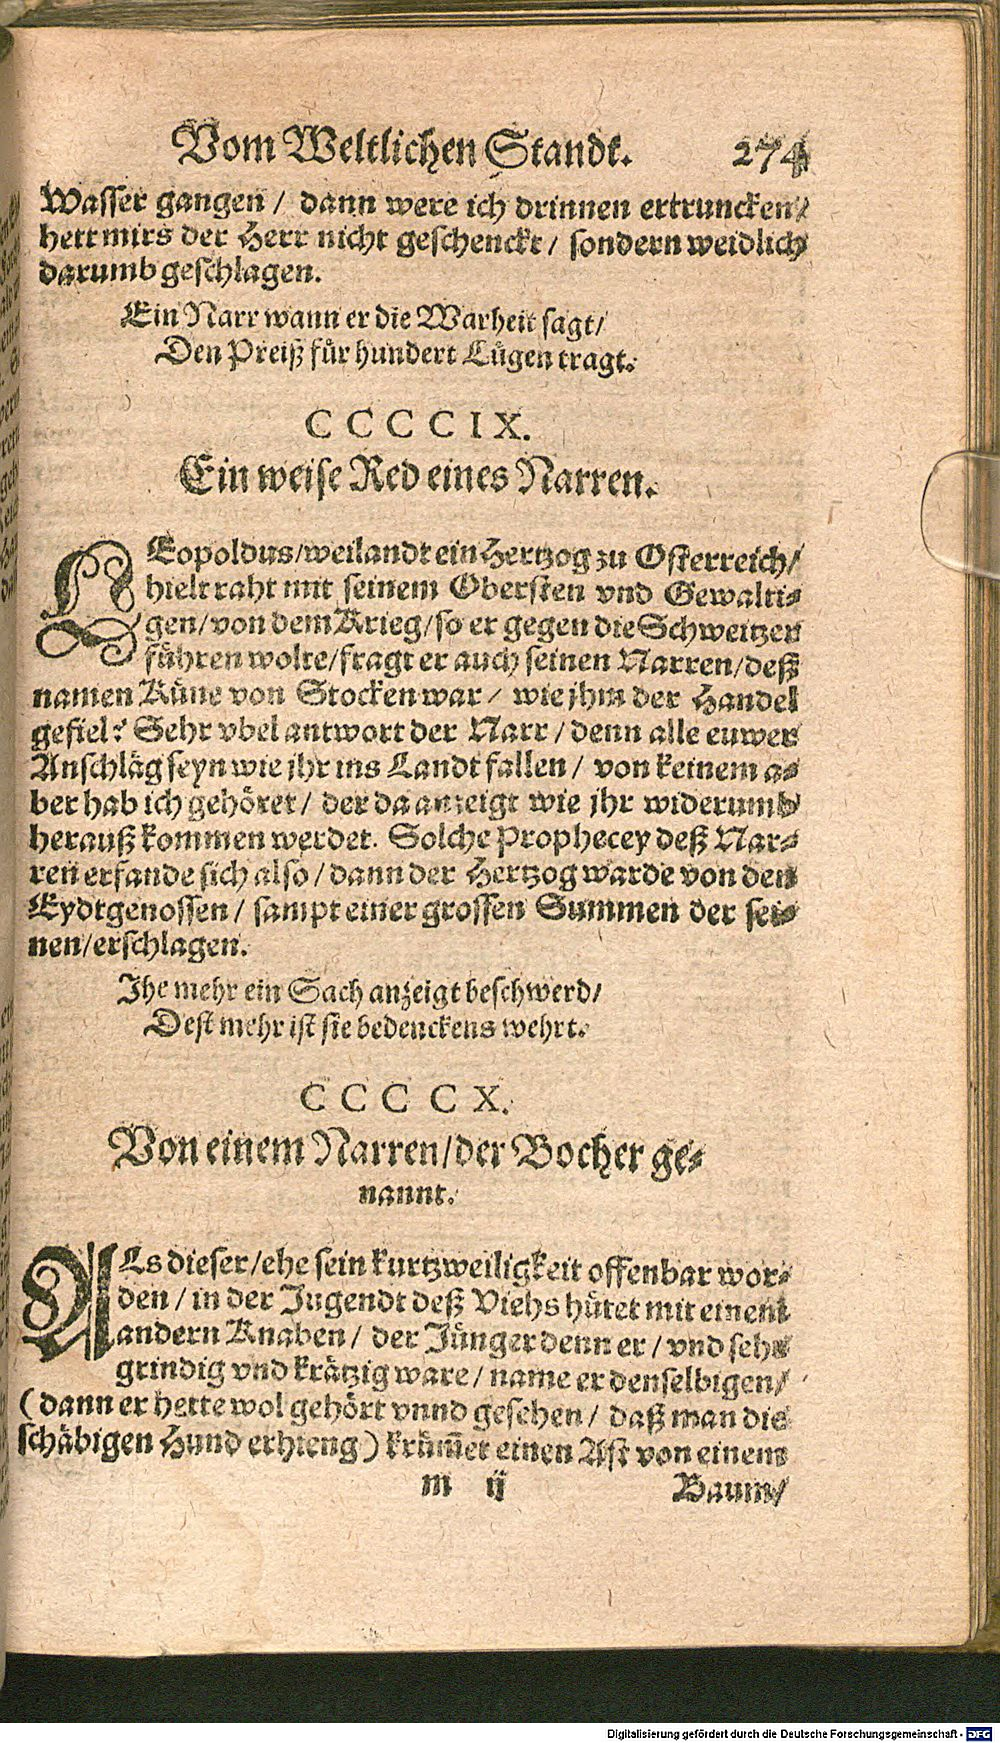 Vom Weltlichen Standt. 274
Wasser gangen / dann were ich drinnen ertruncken /
hett mirs der Herr nicht geschenckt / sondern weidlich
darumb geschlagen.
Ein Narr wann er die Warheit sagt/
Den Preiß für hundert Lügen tragt.
CCCCIX.
Ein weise Red eines Narren.
LEopoldus/weilandt ein Hertzog zu Osterreich/
hielt raht mit seinem Obersten vnd Gewalti-
gen/von dem Krieg/so er gegen die Schweitzer
führen wolte/fragt er auch seinen Narren/deß
namen Küne von Stocken war / wie jhm der Handel
gefiel? Sehr vbel antwort der Narr / denn alle euwer
Anschläg seyn wie jhr ins Landt fallen / von keinem a-
ber hab ich gehöret / der da anzeigt wie jhr widerumb
herauß kommen werdet. Solche Prophecey deß Nar-
ren erfande sich also / dann der Hertzog warde von den
Eydtgenossen / sampt einer grossen Summen der sei-
nen/erschlagen.
Jhe mehr ein Sach anzeigt beschwerd/
Dest mehr ist sie bedenckens wehrt.
CCCCX.
Von einem Narren/der Bocher ge-
nannt.
ALs dieser/ehe sein kurtzweiligkeit offenbar wor-
den / in der Jugendt deß Viehs hütet mit einem
andern Knaben / der Jünger denn er / vnd sehr
grindig vnd krätzig ware / name er denselbigen/
(dann er hette wol gehört vnnd gesehen / daß man die
schäbigen Hund erhieng) krüm̃et einen Ast von einem
m ij Baum/
Digitalisierung gefördert durch die Deutsche Forschungsgemeinschaft - DFG